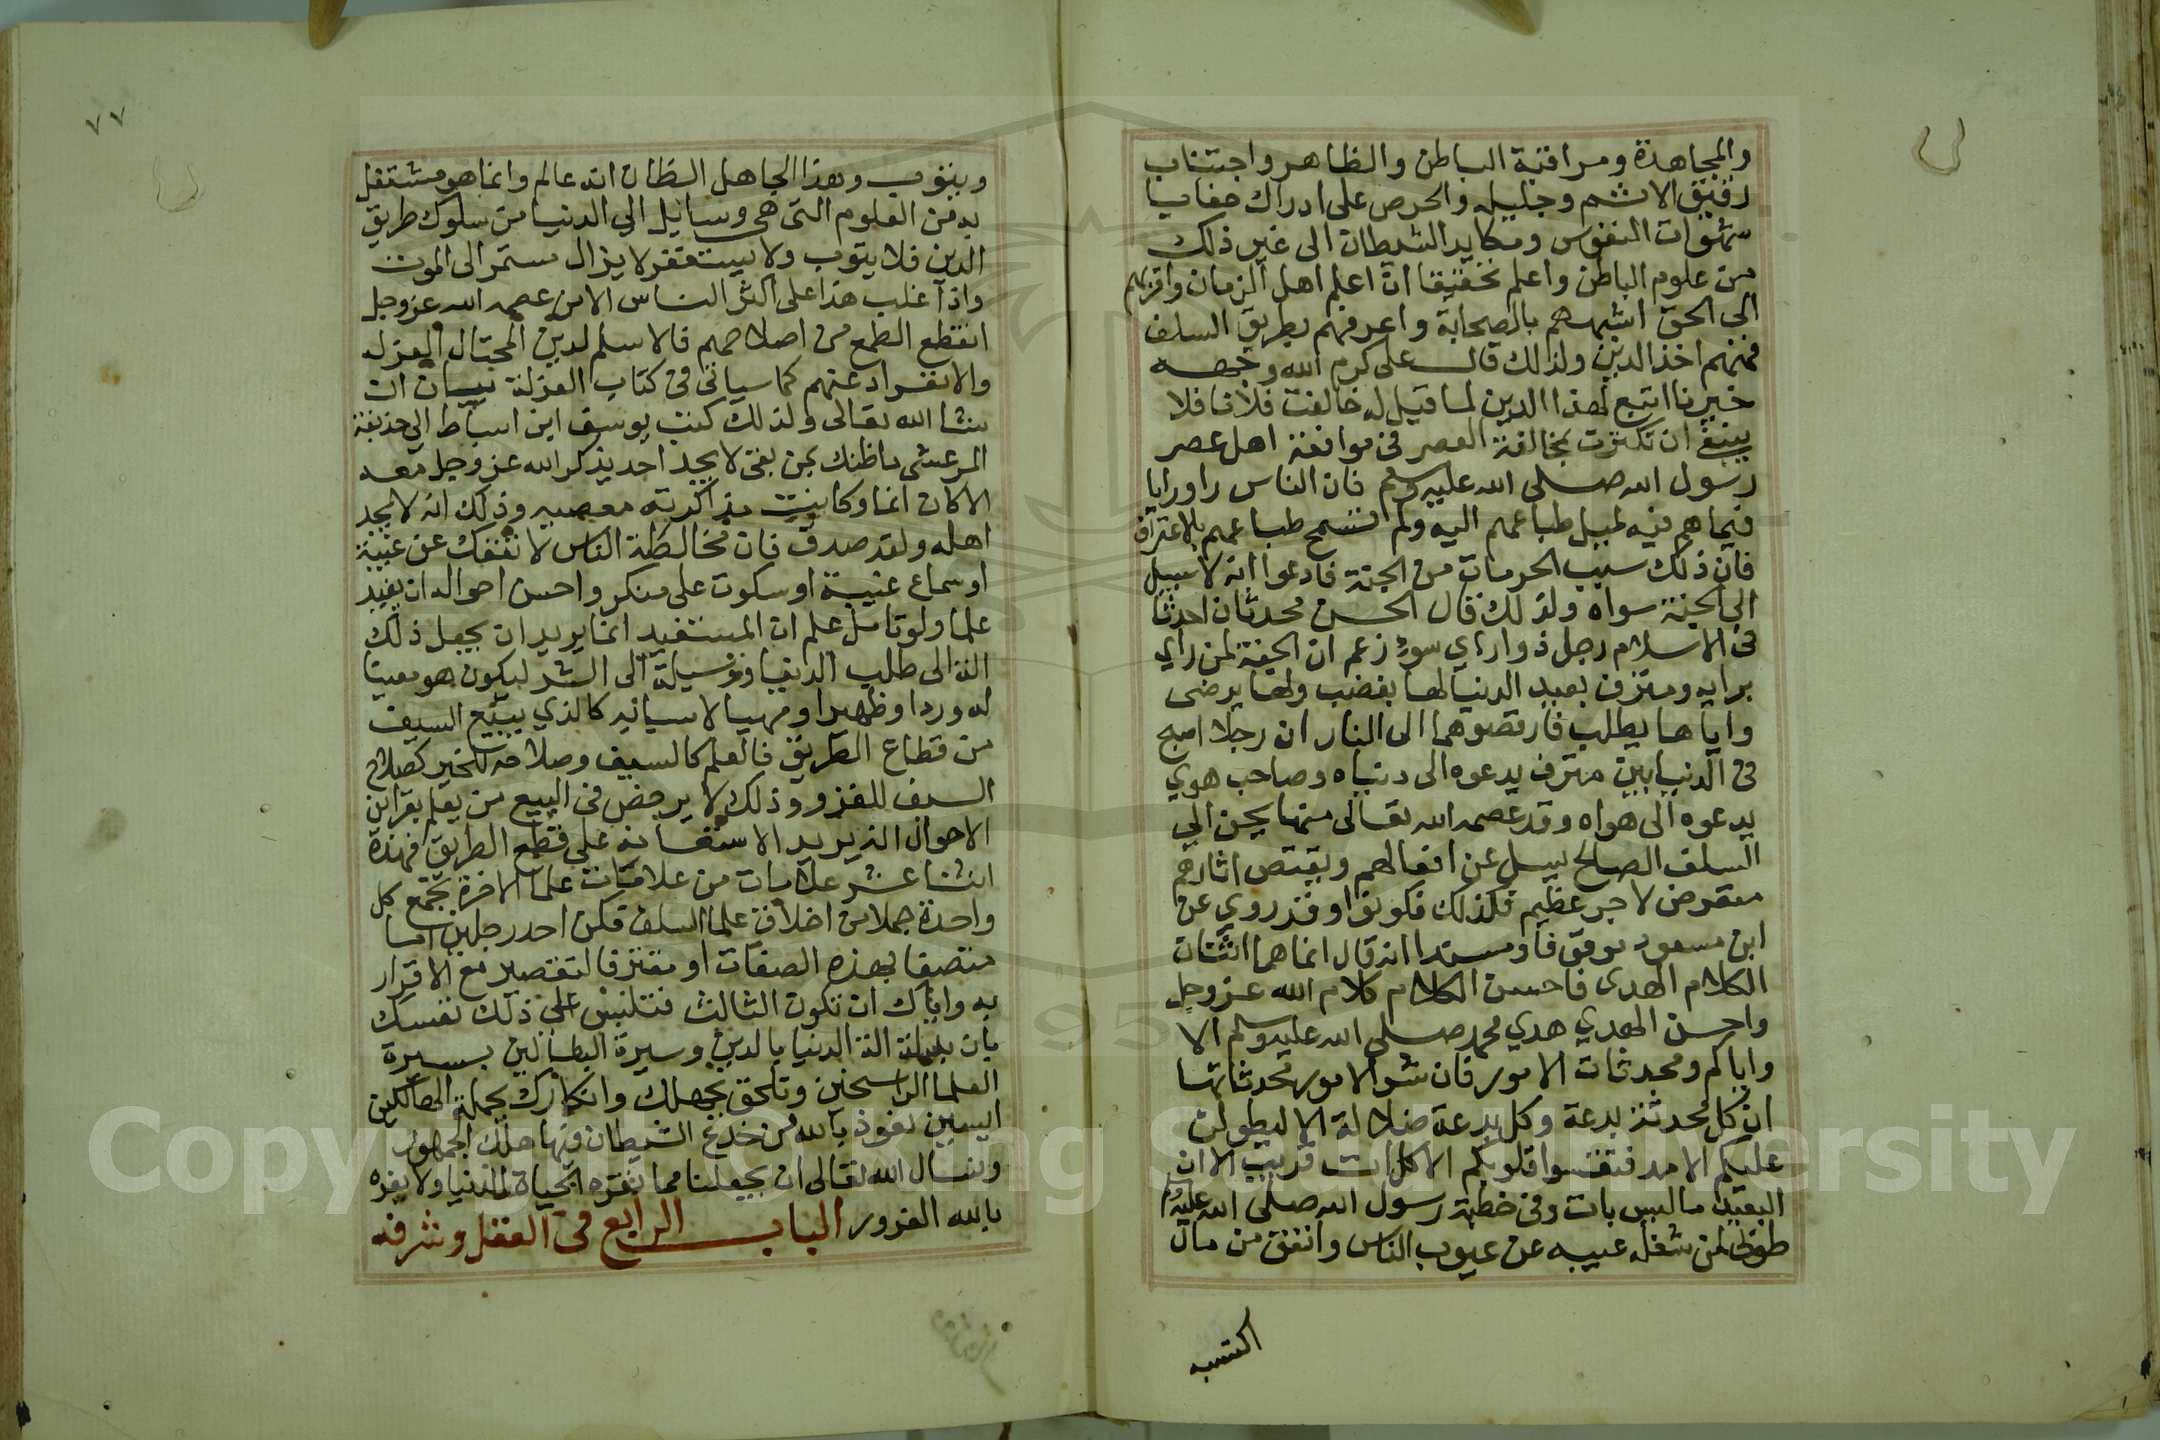 والمجاهدة ومراقبة الباطن والظاهر واجتناب
دقيق الاثم وجليله والحرص على ادراك خفايا
شهوات النفوس ومكايد الشيطان الى غير ذلك
من علوم الباطن واعلم تحقيقا ان اعلم اهل الزمان واقربهم
الى الحق اشبههم بالصحابة واعرفهم بطريق السلف
فمنهم اخذ الدين ولذلك قال على كرم الله وجهه
خيرنا اتبع لهذا الدين لما قيل له خالفت فلانا فلا
ينبغي ان تكترث بمخالفة العصر في موافقة اهل عصر
رسول الله صلى الله عليه وسلم فان الناس راوا رايا
فيما هم فيه لميل طباعهم اليه ولم تسمح طباعهم بالاعتراف
فان ذلك سبب الحرمان من الجنة فادعوا انه لا سبيل
الى الجنة سواه ولذلك قال الحسن محدثان احدثا
في الاسلام رجل ذو اراي سوء زعم ان الجنة لمن راي
برايه ومترف يعبد الدنيا لها يغضب ولها يرضى
واياها يطلب فارفضوهما الى النار ان رجلا اصبح
في الدنيا بين مترف يدعوه الى دنياه وصاحب هوي
يدعوه الى هواه وقد عصمه الله تعالى منهما يحن الي
السلف الصالح يسيل عن افعالهم ويقتص اثارهم
متعرض لاجر عظيم فكذلك فكونوا وقد روي عن
ابن مسعود موقوفا ومسندا انه قال انما هما اثنتان
الكلام الهدى فاحسن الكلام كلام الله عز وجل
واحسن الهدي هدي محمد صلى الله عليه وسلم الا
واياكم ومحدثات الامور فان شر الامور محدثاتها
ان كل محدثة بدعة وكل بدعة ضلالة الا ليطولن
عليكم الامد فتقسوا قلوبكم الا كل ات قريب الا ان
البعيد ما ليس بات وفي خطبة رسول الله صلى الله عليه وسلم
طوبى لمن شغله عيبه عن عيوب الناس وانفق من مال
اكتسبه
٧٧
ويتوب وهذا الجاهل الظان انه عالم وانما هو مشتغل
به من العلوم التى هى وسايل الي الدنيا من سلوك طريق
الدين فلا يتوب ولا يستغفر لا يزال مستمر الى الموت
واذا غلب هذا على اكثر الناس الا من عصمه الله عز وجل
انقطع الطمع من اصلاحهم فالاسلم لدين المحتال العزله
والانفراد عنهم كما سياتي في كتاب العزلة بيانه ان
شا الله تعالى ولذلك كتب يوسف ابن اسباط الي حذيفة
المرعشي ما ظنك بمن بقى لا يجد احد يذكر الله عز وجل معه
الا كان اثما وكانت مذاكرته معصيه وذلك انه لا يجد
اهله ولقد صدق فان مخالطة الناس لا تنفك عن غيبة
او سماع غيبة او سكوت على منكر واحسن احواله ان يفيد
علما ولو تامل علم ان المستفيد انما يريد ان يجعل ذلك
الة الى طلب الدنيا ووسيلة الى الشر ليكون هو معينا
له وردا وظهيرا ومهييا لاسبابه كالذي يبيع السيف
من قطاع الطريق فالعلم كالسيف وصلاحه للخير كصلاح
السيف للغزو وذلك لا يرخص في البيع من يعلم بقراين
الاحوال انه يريد الاستعانة على قطع الطريق فهذه
اثنتا عشر علامات من علامات علما الاخرة تجمع كل
واحدة جملا من اخلاق علما السلف فكن احد رجلين اما
متصفا بهذه الصفات او معترفا لتقصير مع الاقرار
به واياك ان تكون الثالث فتلبس على ذلك نفسك
بان الة الدنيا بالدين وسيرة البطالين بسيرة
العلما الراسخين وتلحق بجهلك وانكارك بجملة الهالكين
اليسين نعوذ بالله من خدع الشيطان فبها هلك الجمهور
ونسال الله تعالى ان يجعلنا مما تغره الحياة الدنيا ولا يغره
بالله الغرور الباب الرابع في العقل وشرفه
Copy King University